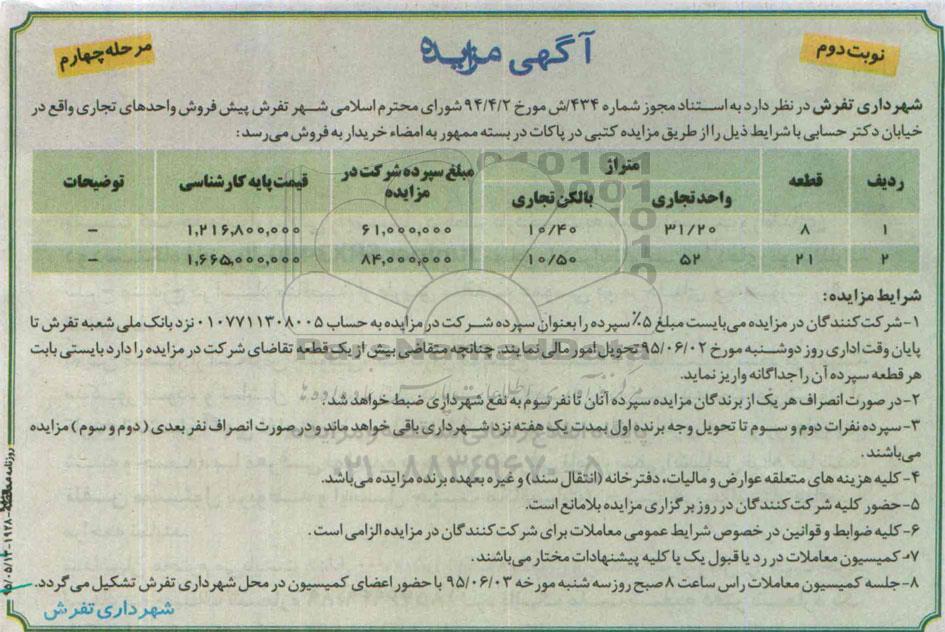 نوبت دوم
آگهی مزایده
مرحله چهارم
شهرداری تفرش در نظر دارد به استناد مجوز شماره ۴۳۴/ش مورخ ۹۴/۴/۲ شورای محترم اسلامی شهر تفرش پیش فروش واحدهای تجاری واقع در
خیابان دکتر حسابی با شرایط ذیل را از طریق مزایده کتبی در پاکات در بسته ممهور به امضاء خریدار به فروش می رسد:
ردیف قطعه متراژ مبلغ سپرده شرکت در مزایده قیمت پایه کارشناسی توضیحات
واحد تجاری بالکن تجاری
۱ ۸ ۳۱/۲۰ ۱۰/۴۰ ۶۱,۰۰۰,۰۰۰ ۱,۲۱۶,۸۰۰,۰۰۰ –
۲ ۲۱ ۵۲ ۱۰/۵۰ ۸۴,۰۰۰,۰۰۰ ۱,۶۶۵,۰۰۰,۰۰۰ –
شرایط مزایده:
۱- شرکت کنندگان در مزایده می بایست مبلغ ۵٪ سپرده را بعنوان سپرده شرکت در مزایده به حساب ۰۱۰۷۷۱۱۳۰۸۰۰۵ نزد بانک ملی شعبه تفرش تا
پایان وقت اداری روز دوشنبه مورخ ۹۵/۰۶/۰۲ تحویل امور مالی نمایند. چنانچه متقاضی بیش از یک قطعه تقاضای شرکت در مزایده را دارد بایستی بابت
هر قطعه سپرده آن را جداگانه واریز نماید.
۲- در صورت انصراف هر یک از برندگان مزایده سپرده آنان تا نفر سوم به نفع شهرداری ضبط خواهد شد.
۳- سپرده نفرات دوم و سوم تا تحویل وجه برنده اول بمدت یک هفته نزد شهرداری باقی خواهد ماند و در صورت انصراف نفر بعدی (دوم و سوم) مزایده
می باشند.
۴- کلیه هزینه های متعلقه عوارض و مالیات، دفترخانه (انتقال سند) و غیره بعهده برنده مزایده می باشد.
۵- حضور کلیه شرکت کنندگان در روز برگزاری مزایده بلامانع است.
۶- کلیه ضوابط و قوانین در خصوص شرایط عمومی معاملات برای شرکت کنندگان در مزایده الزامی است.
۷- کمیسیون معاملات در رد یا قبول یک یا کلیه پیشنهادات مختار می باشند.
۸- جلسه کمیسیون معاملات راس ساعت ۸ صبح روز سه شنبه مورخه ۹۵/۰۶/۰۳ با حضور اعضای کمیسیون در محل شهرداری تفرش تشکیل می گردد.
شهرداری تفرش
ParsNamadData
۰۲۱-۸۸۳۴۹۶۷۰-۵